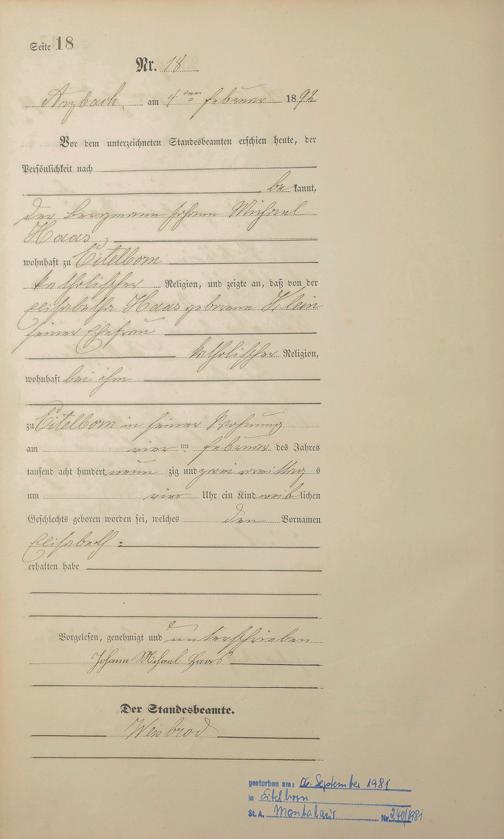 Seite 18
Nr. 18
Arzbach, am 4 ten Februar 1892
Vor dem unterzeichneten Standesbeamten erschien heute, der
Persönlichkeit nach
be kannt,
der Bergmann Johann Michael
Haas,
wohnhaft zu Eitelborn
katholischer Religion, und zeigte an, daß von der
Elisabetha Haas geborene Klein
seiner Ehefrau
katholischer Religion,
wohnhaft bei ihm
zu Eitelborn in seiner Wohnung
am vier ten Februar des Jahres
tausend acht hundert neun zig und zwei Vormittags
um vier Uhr ein Kind weib lichen
Geschlechts geboren worden sei, welches den Vornamen
Elisabeth
erhalten habe
Vorgelesen, genehmigt und unterschrieben
Johann Michael Haas
Der Standesbeamte.
gestorben am: September 1981
in Eitelborn
St. A. Montabaur Nr. 1981